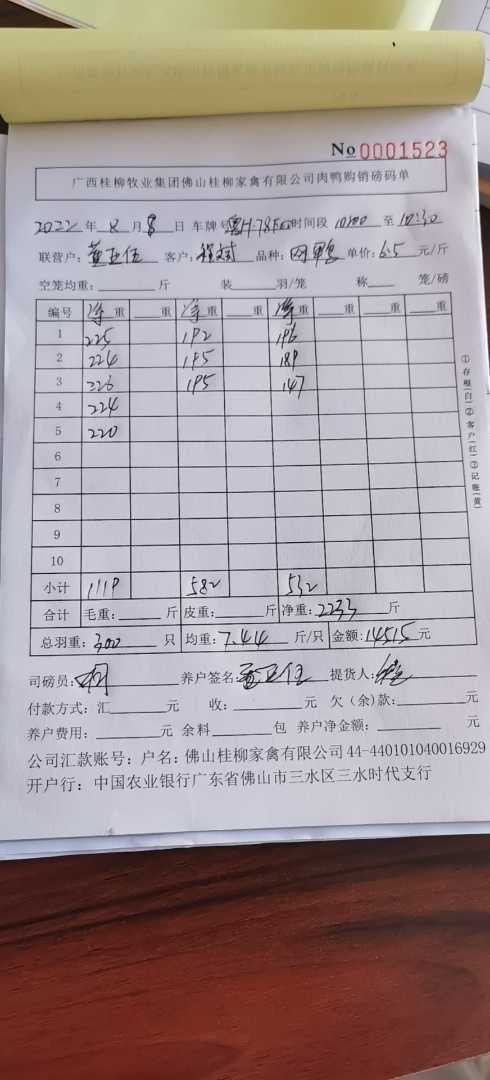 No 0001523
广西桂柳牧业集团佛山桂柳家禽有限公司肉鸭购销磅码单
2022 年 8 月 8 日 车牌号 时间段 10:00 至 10:30
联营户: 董亚伍 客户: 程斌 品种: 网鸭 单价: 6.5 元/斤
空笼均重: 斤 装 羽/笼 称 笼/磅
编号 净重 重 净重 重 净重 重 重 重
1 225 192 196
2 224 195 189
3 226 195 147
4 224
5 220
6
7
8
9
10
小计 1119 582 532
合计 毛重: 斤 皮重: 斤 净重: 2233 斤
总羽重: 300 只 均重: 7.44 斤/只 金额: 14515 元
司磅员: 养户签名: 董亚伍 提货人:
付款方式: 汇 元 收: 元 欠(余)款: 元
养户费用: 元 余料 包 养户净金额: 元
公司汇款账号: 户名: 佛山桂柳家禽有限公司 44-440101040016929
开户行: 中国农业银行广东省佛山市三水区三水时代支行
①存根(白)②客户(红)③记账(黄)